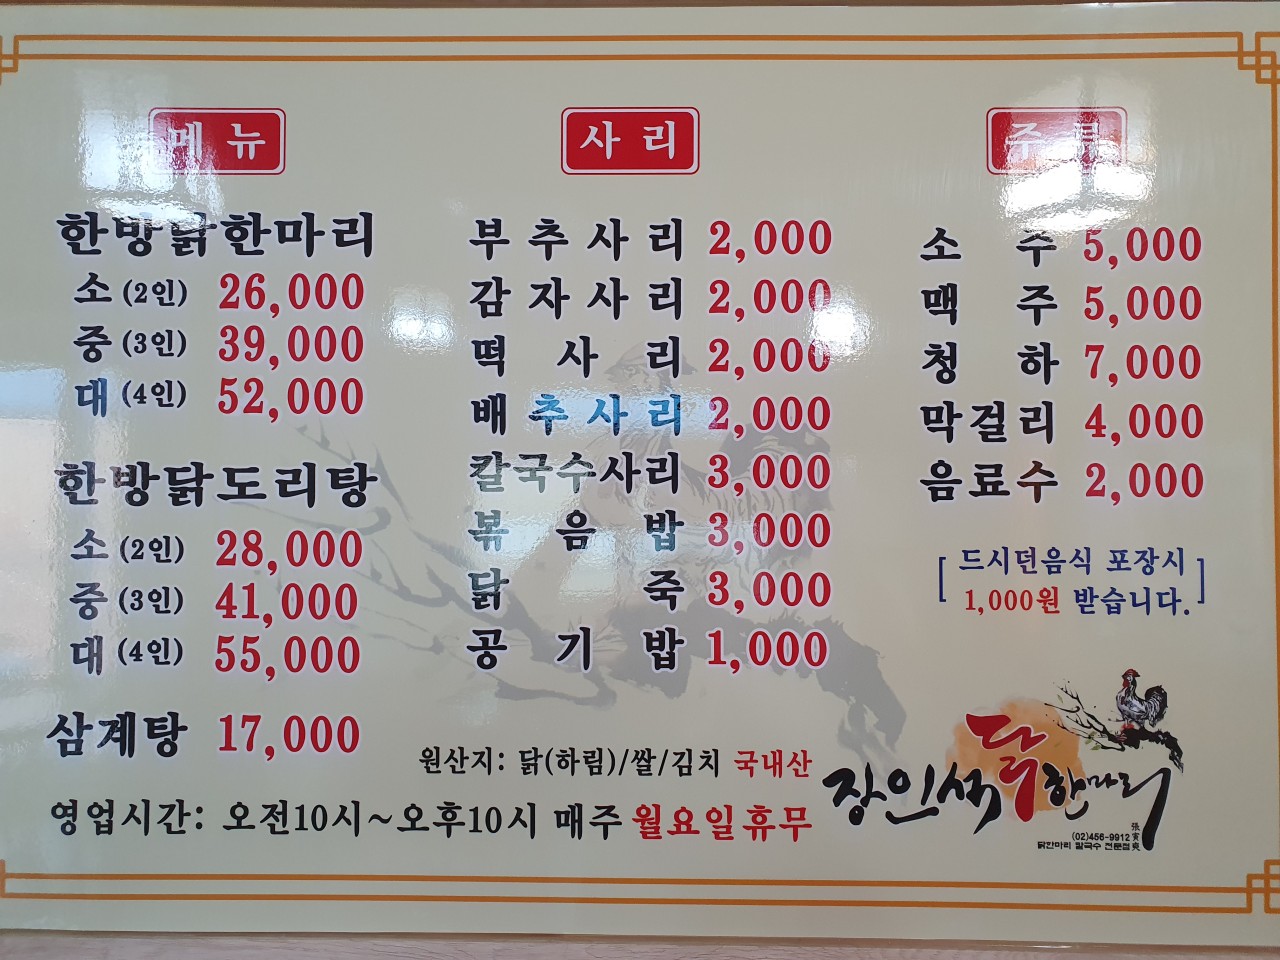 메뉴
한방닭한마리
소 (2인) 26,000
중 (3인) 39,000
대 (4인) 52,000
한방닭도리탕
소 (2인) 28,000
중 (3인) 41,000
대 (4인) 55,000
삼계탕 17,000
사리
부추사리 2,000
감자사리 2,000
떡사리 2,000
배추사리 2,000
칼국수사리 3,000
볶음밥 3,000
닭죽 3,000
공기밥 1,000
주류
소주 5,000
맥주 5,000
청하 7,000
막걸리 4,000
음료수 2,000
[드시던음식 포장시
1,000원 받습니다.]
원산지: 닭(하림)/쌀/김치 국내산
영업시간: 오전10시~오후10시 매주 월요일휴무
장인석닭한마리
(02)456-9912
닭한마리 칼국수 전문점